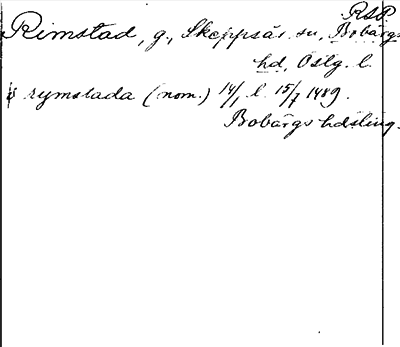 RSP.
Rimstad, g., Skeppsås sn, Bobärgs
hd, Östg. l.
rymstada (nom.) 14/1 l. 15/7 1489.
Bobärgs hdsting.